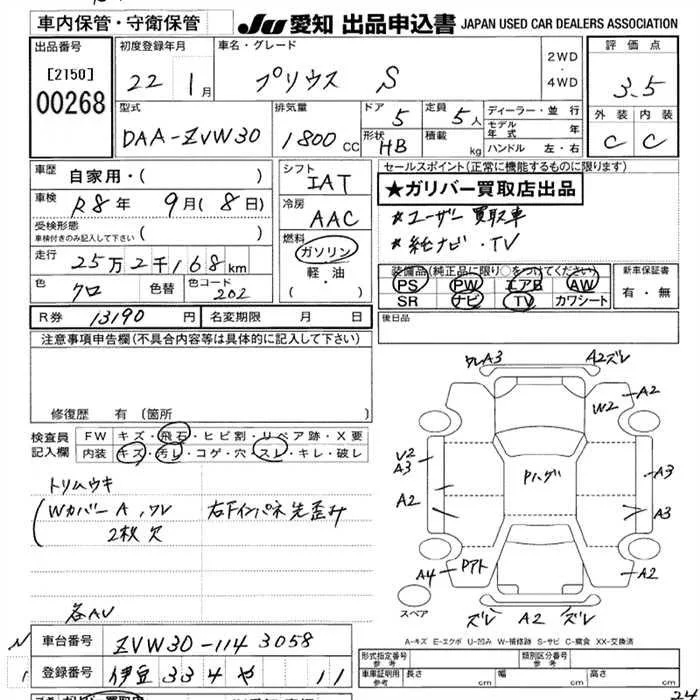 車内保管・守衛保管
JU 愛知 出品申込書 JAPAN USED CAR DEALERS ASSOCIATION
出品番号
[2150]
00268
初度登録年月
22年 1月
車名・グレード
プリウス S
2WD
・
4WD
評価点
3.5
外装 内装
C C
型式
DAA-ZVW30
排気量
1800 CC
ドア 5
定員 5人
形状 HB
積載 kg
ディーラー・並行
モデル年式 年
ハンドル 左・右
車歴 自家用・( )
車検 R8年 9月(8日)
受検形態
車検付きのみ記入して下さい ( )
走行 25万2千168km
色 クロ 色替 色コード 202
シフト
IAT
冷房
AAC
燃料
ガソリン
軽・油
( ・ )
R券 13190円 名変期限 月 日
セールスポイント(正常に機能するものに限ります)
★ガリバー買取店出品
*ユーザー買取車
*純ナビ・TV
装備品(純正品に限り○をつけてください)
PS PW エアB AW
SR ナビ TV カワシート
新車保証書
有・無
後日品
注意事項申告欄(不具合内容等は具体的に記入して下さい)
修復歴 有(箇所
検査員記入欄
FW キズ・飛石・ヒビ割・リペア跡・X要
内装 キズ・汚レ・コゲ・穴・スレ・キレ・破レ
トリムウキ
Wカバー A,ワレ
2枚欠
右Fインパネ先歪み
各AU
ワレA3 A2ズレ
A2
W2
U2
A3
Pハゲ
A3
A2
A3
A4 Pアト
A2
スペア
ズレ A2 ズレ
A-キズ E-エクボ U-凹み W-補修跡 S-サビ C-腐食 XX-交換済
車台番号 ZVW30-1143058
登録番号 伊豆 334 や 11
形式指定番号
参考
類別区分番号
参考
車庫証明用
参考
長さ cm 幅 cm 高さ cm